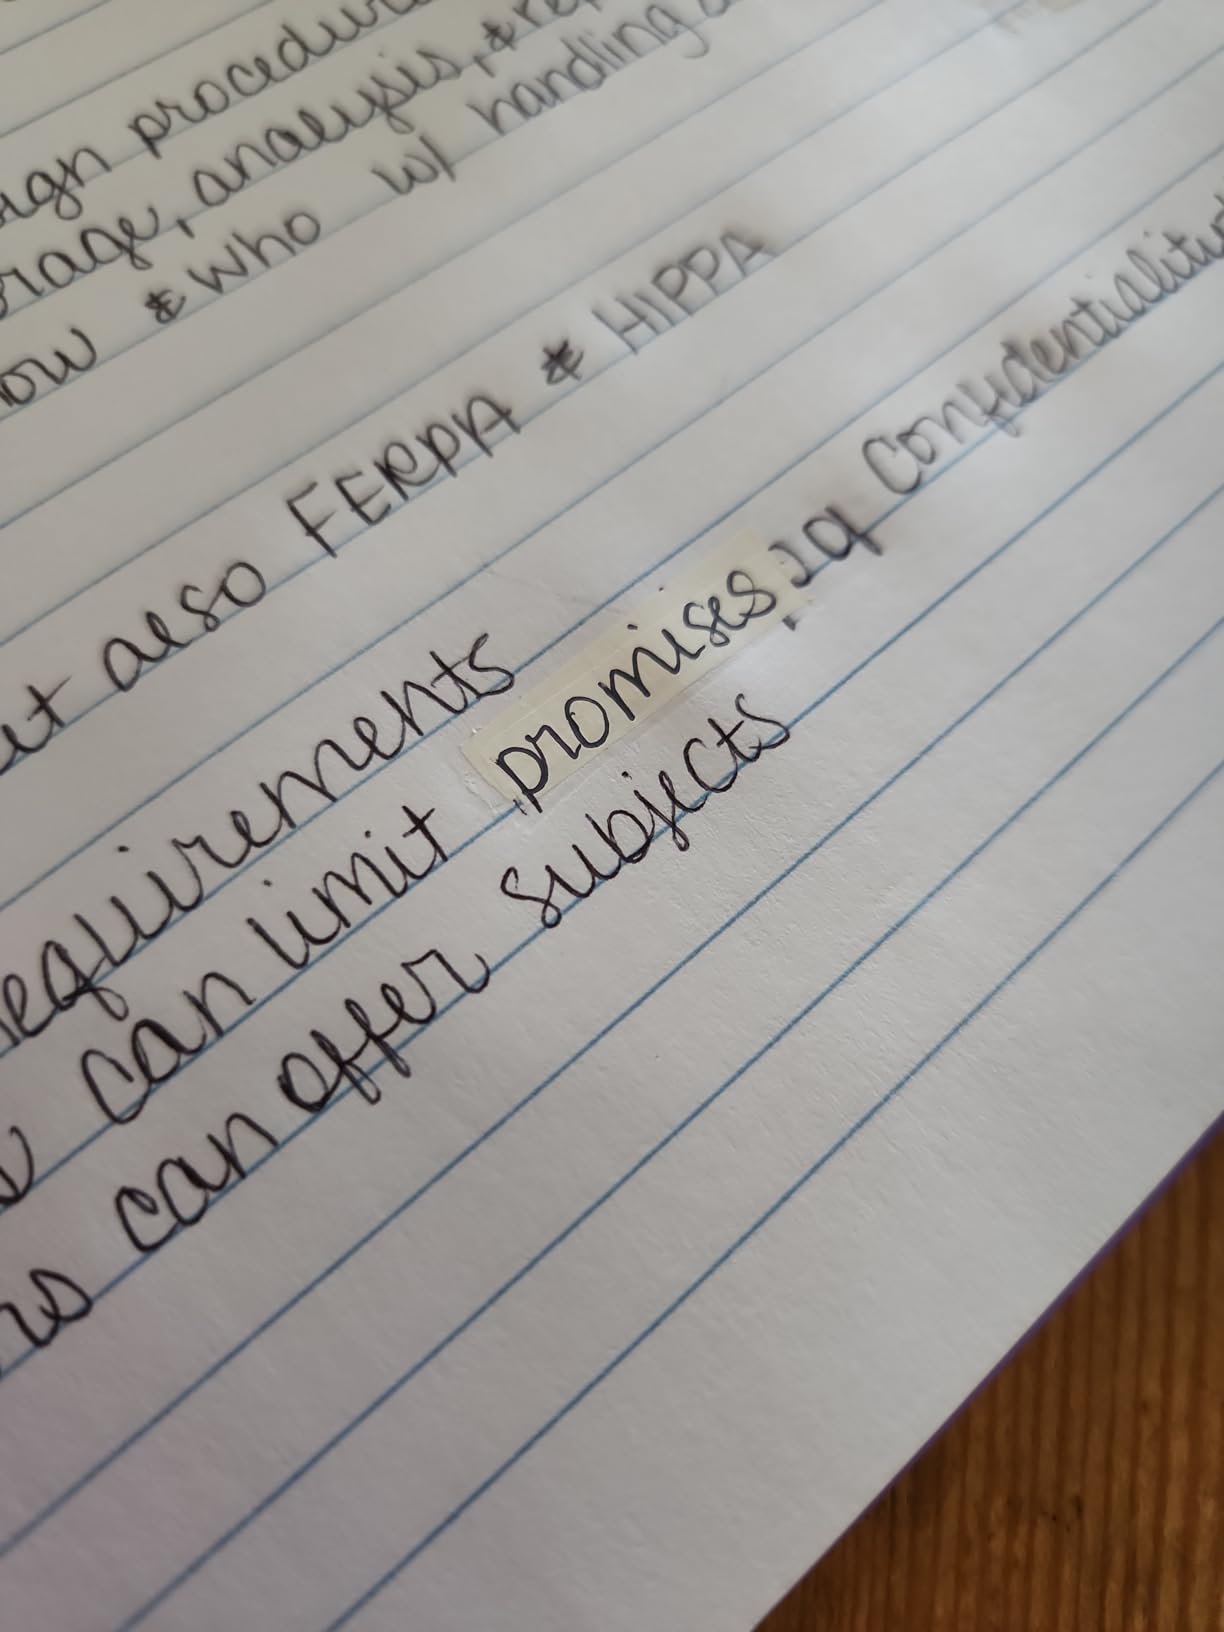 procedur
analysis, & rep
& who w/ handling
also FERPA & HIPPA
requirements
can limit promises of confidentiality
can offer subjects